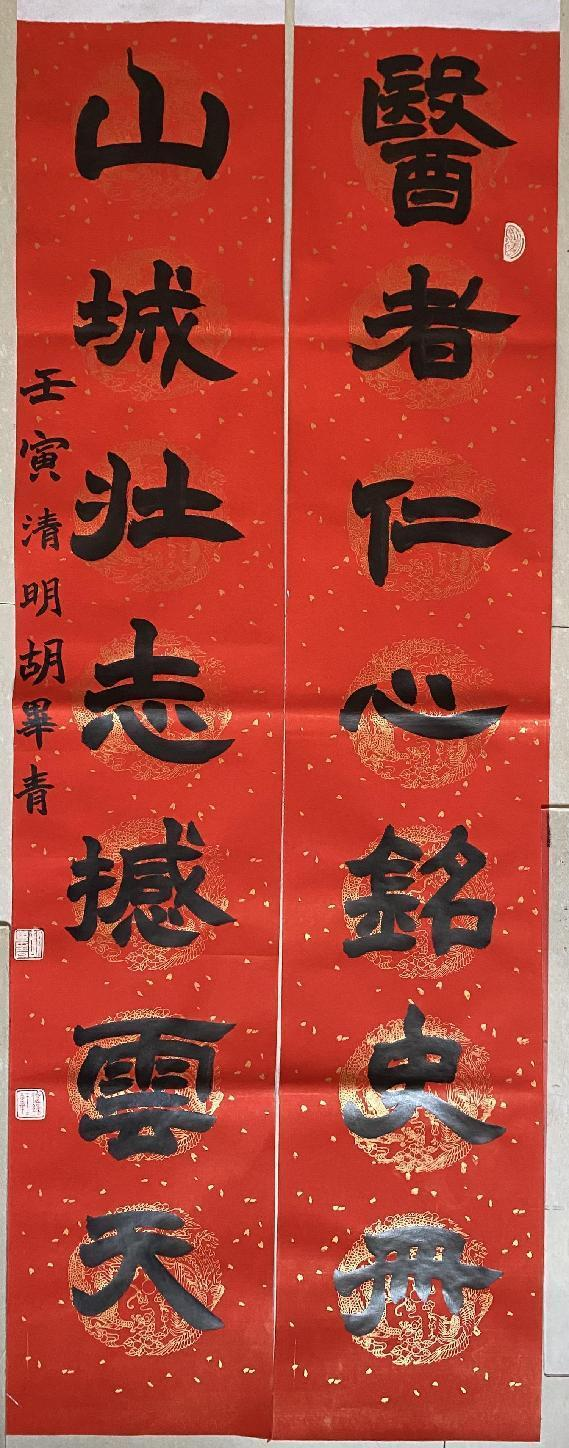 醫者仁心銘史冊
山城壮志撼雲天
壬寅清明胡畢青